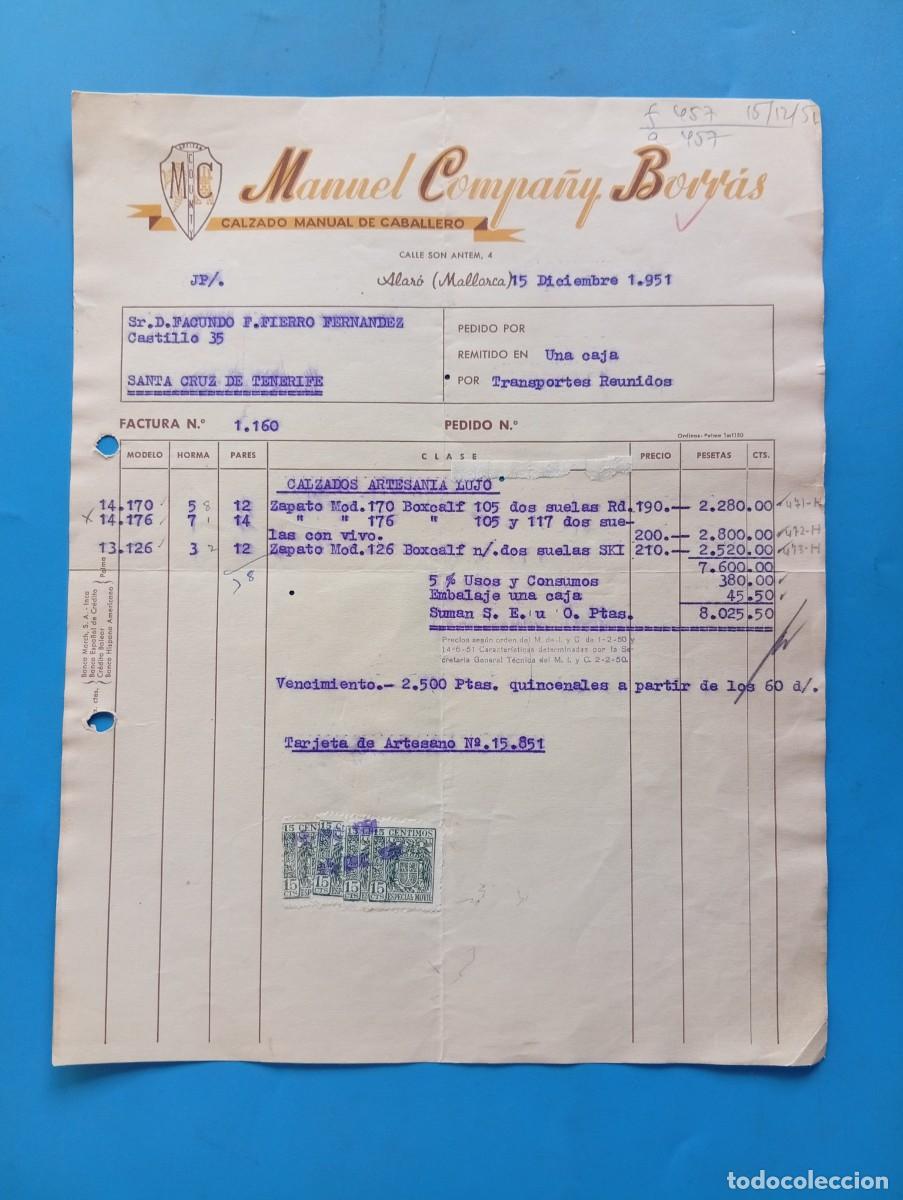 f 457 15/12/51
a 457
MC
Manuel Compañy Borrás
CALZADO MANUAL DE CABALLERO
CALLE SON ANTEM, 4
JP/. Alaró (Mallorca) 15 Diciembre 1.951
Sr.D.FACUNDO F.FIERRO FERNANDEZ
Castillo 35
SANTA CRUZ DE TENERIFE
PEDIDO POR
REMITIDO EN Una caja
POR Transportes Reunidos
FACTURA N.º 1.160 PEDIDO N.º
MODELO HORMA PARES CLASE PRECIO PESETAS CTS.
CALZADOS ARTESANIA LUJO
14.170 5 8 12 Zapato Mod.170 Boxcalf 105 dos suelas Rd. 190.— 2.280.00 471-H
x 14.176 7 14 " " 176 " 105 y 117 dos sue-
las con vivo. 200.— 2.800.00 472-H
13.126 3 2 12 Zapato Mod.126 Boxcalf n/.dos suelas SKI 210.— 2.520.00 473-H
7.600.00
38
5 % Usos y Consumos 380.00
Embalaje una caja 45.50
Suman S. E. u O. Ptas. 8.025.50
Precios según orden del M. de I. y C. de 1-2-50 y
14-6-51 Características determinadas por la Se-
cretaría General Técnica del M. I. y C. 2-2-50.
Vencimiento.- 2.500 Ptas. quincenales a partir de los 60 d/.
Tarjeta de Artesano Nº.15.851
ctas.
Banca March, S. A. - Inca
Banco Español de Crédito
Crédito Balear
Banco Hispano Americano
Palma
15 CENT
15 C
15 C
15 CENTIMOS
15 CTS
15 CTS
15 CTS
15 CTS
ESPECIAL MOVIL
todocoleccion